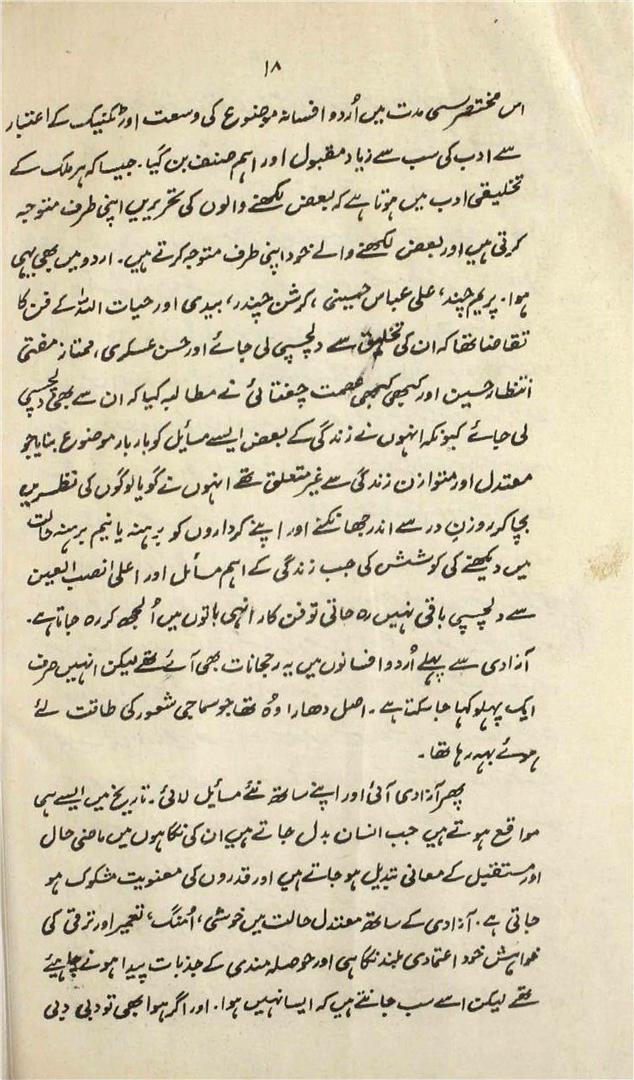 ۱۸
اس مختصر سی مدت میں اُردو افسانہ موضوع کی وسعت اور ٹکنیک کے اعتبار
سے ادب کی سب سے زیادہ مقبول اور اہم صنف بن گیا۔ جیسا کہ ہر ملک کے
تخلیقی ادب میں ہوتا ہے کہ بعض لکھنے والوں کی تحریریں اپنی طرف متوجہ
کرتی ہیں اور بعض لکھنے والے خود اپنی طرف متوجہ کرتے ہیں۔ اردو میں بھی یہی
ہوا۔ پریم چند، علی عباس حسینی، کرشن چندر، بیدی اور حیات اللہ کے فن کا
تقاضا تھا کہ ان کی تخلیق سے دلچسپی لی جائے اور حسن عسکری، ممتاز مفتی
انتظار حسین اور کبھی کبھی عصمت چغتائی نے مطالبہ کیا کہ ان سے بھی دلچسپی
لی جائے کیونکہ انہوں نے زندگی کے بعض ایسے مسایل کو بار بار موضوع بنایا جو
معتدل اور متوازن زندگی سے غیر متعلق تھے انہوں نے گویا لوگوں کی نظریں
بچا کر روزنِ در سے اندر جھانکنے اور اپنے کرداروں کو برہنہ یا نیم برہنہ حالت
میں دیکھنے کی کوشش کی جب زندگی کے اہم مسائل اور اعلیٰ نصب العین
سے دلچسپی باقی نہیں رہ جاتی تو فن کار انہی باتوں میں اُلجھ کر رہ جاتا ہے۔
آزادی سے پہلے اُردو افسانوں میں یہ رجحانات بھی آئے تھے لیکن انہیں صرف
ایک پہلو کہا جا سکتا ہے۔ اصل دھارا وُہ تھا جو سماجی شعور کی طاقت لئے
ہوئے بہہ رہا تھا۔
پھر آزادی آئی اور اپنے ساتھ نئے مسایل لائی۔ تاریخ میں ایسے ہی
مواقع ہوتے ہیں جب انسان بدل جاتے ہیں ان کی نگاہوں میں ماضی حال
اور مستقبل کے معانی تبدیل ہو جاتے ہیں اور قدروں کی معنویت مشکوک ہو
جاتی ہے۔ آزادی کے ساتھ معتدل حالت میں خوشی، اُمنگ، تعمیر اور ترقی کی
خواہش خود اعتمادی بلند نگاہی اور حوصلہ مندی کے جذبات پیدا ہونے چاہیئے
تھے لیکن اسے سب جانتے ہیں کہ ایسا نہیں ہوا۔ اور اگر ہوا بھی تو دبی دبی